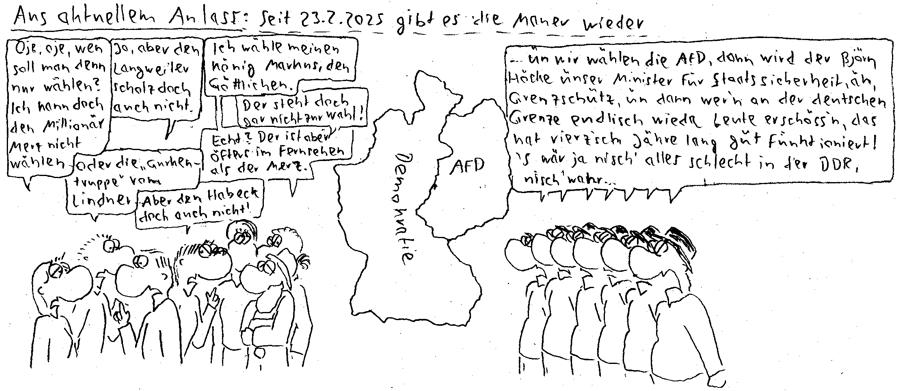 Aus aktuellem Anlass: Seit 23.2.2025 gibt es die Mauer wieder
Oje, oje, wen
soll man denn
nur wählen?
Ich kann doch
den Millionär
Merz nicht
wählen
Ja, aber den
Langweiler
Scholz doch
auch nicht.
Oder die "Gurken-
truppe" vom
Lindner
Aber den Habeck
doch auch nicht!
Ich wähle meinen
König Markus, den
Göttlichen.
Der steht doch
gar nicht zur Wahl!
Echt? Der ist aber
öfters im Fernsehen
als der Merz.
Demokratie
AFD
... ün wir wählen die AFD, dann wird der Björn
Höcke ünser Minister für Staatssicherheit, äh,
Grenzschütz, ün dann wer'n an der deutschen
Grenze endlisch wieda Leute erschoss'n, das
hat vierzisch Jähre lang güt fünktioniert!
's wär ja nisch' alles schlecht in der DDR,
nisch' wahr...